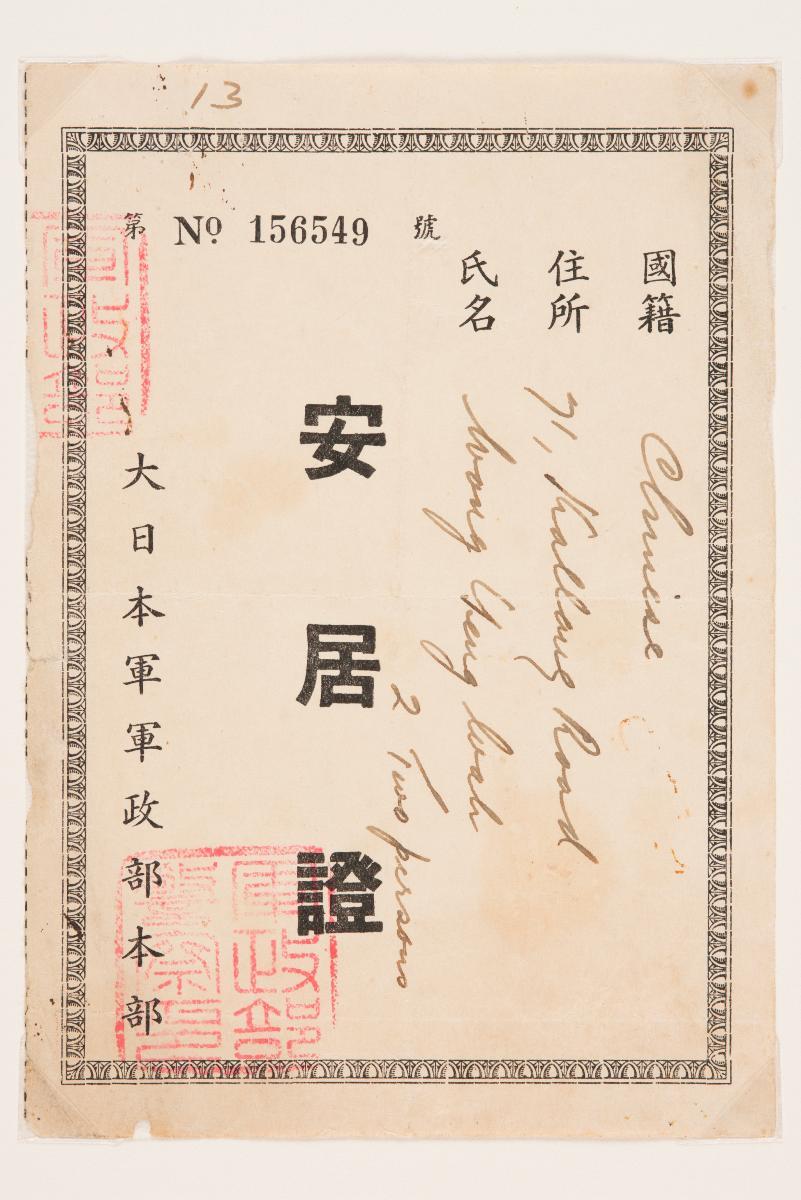 13
第 Nº 156549 號
國籍 Chinese
住所 71, Kallang Road
氏名 Wong Cheng Wah
2 Two persons
安居證
大日本軍軍政部本部
軍政部
警察局